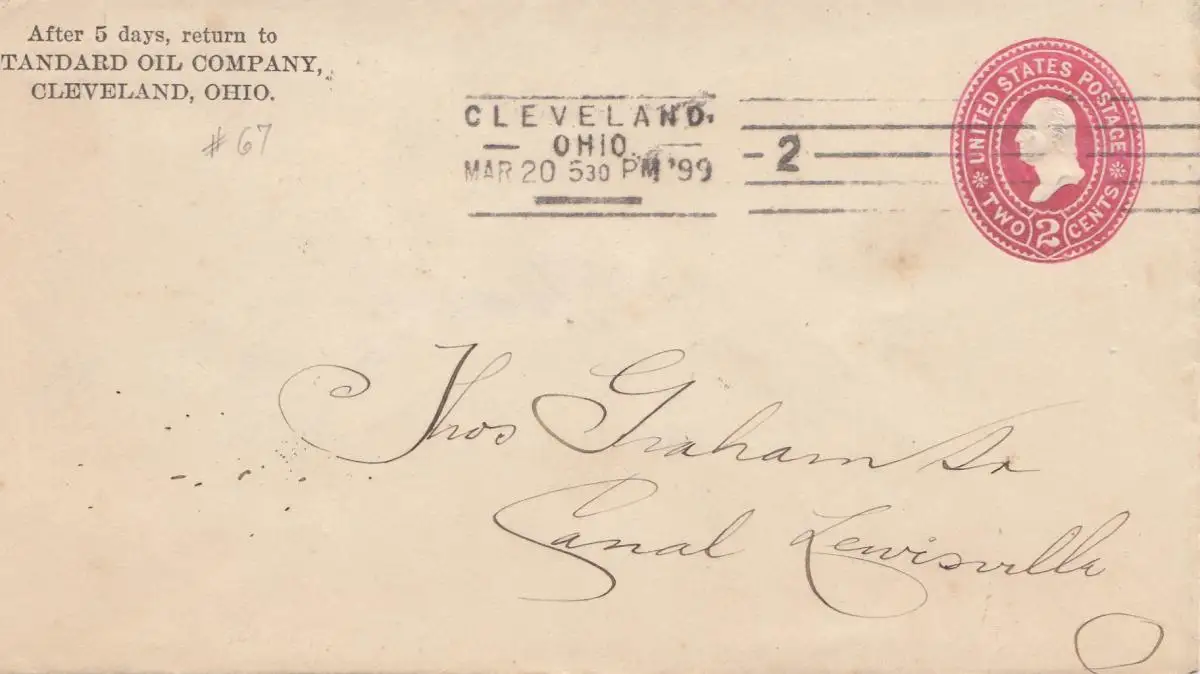 After 5 days, return to
TANDARD OIL COMPANY,
CLEVELAND, OHIO.
# 67
CLEVELAND,
OHIO.
MAR 20 530 PM '99
2
UNITED STATES POSTAGE
TWO 2 CENTS
Thos Graham Sr
Canal Lewisville
O